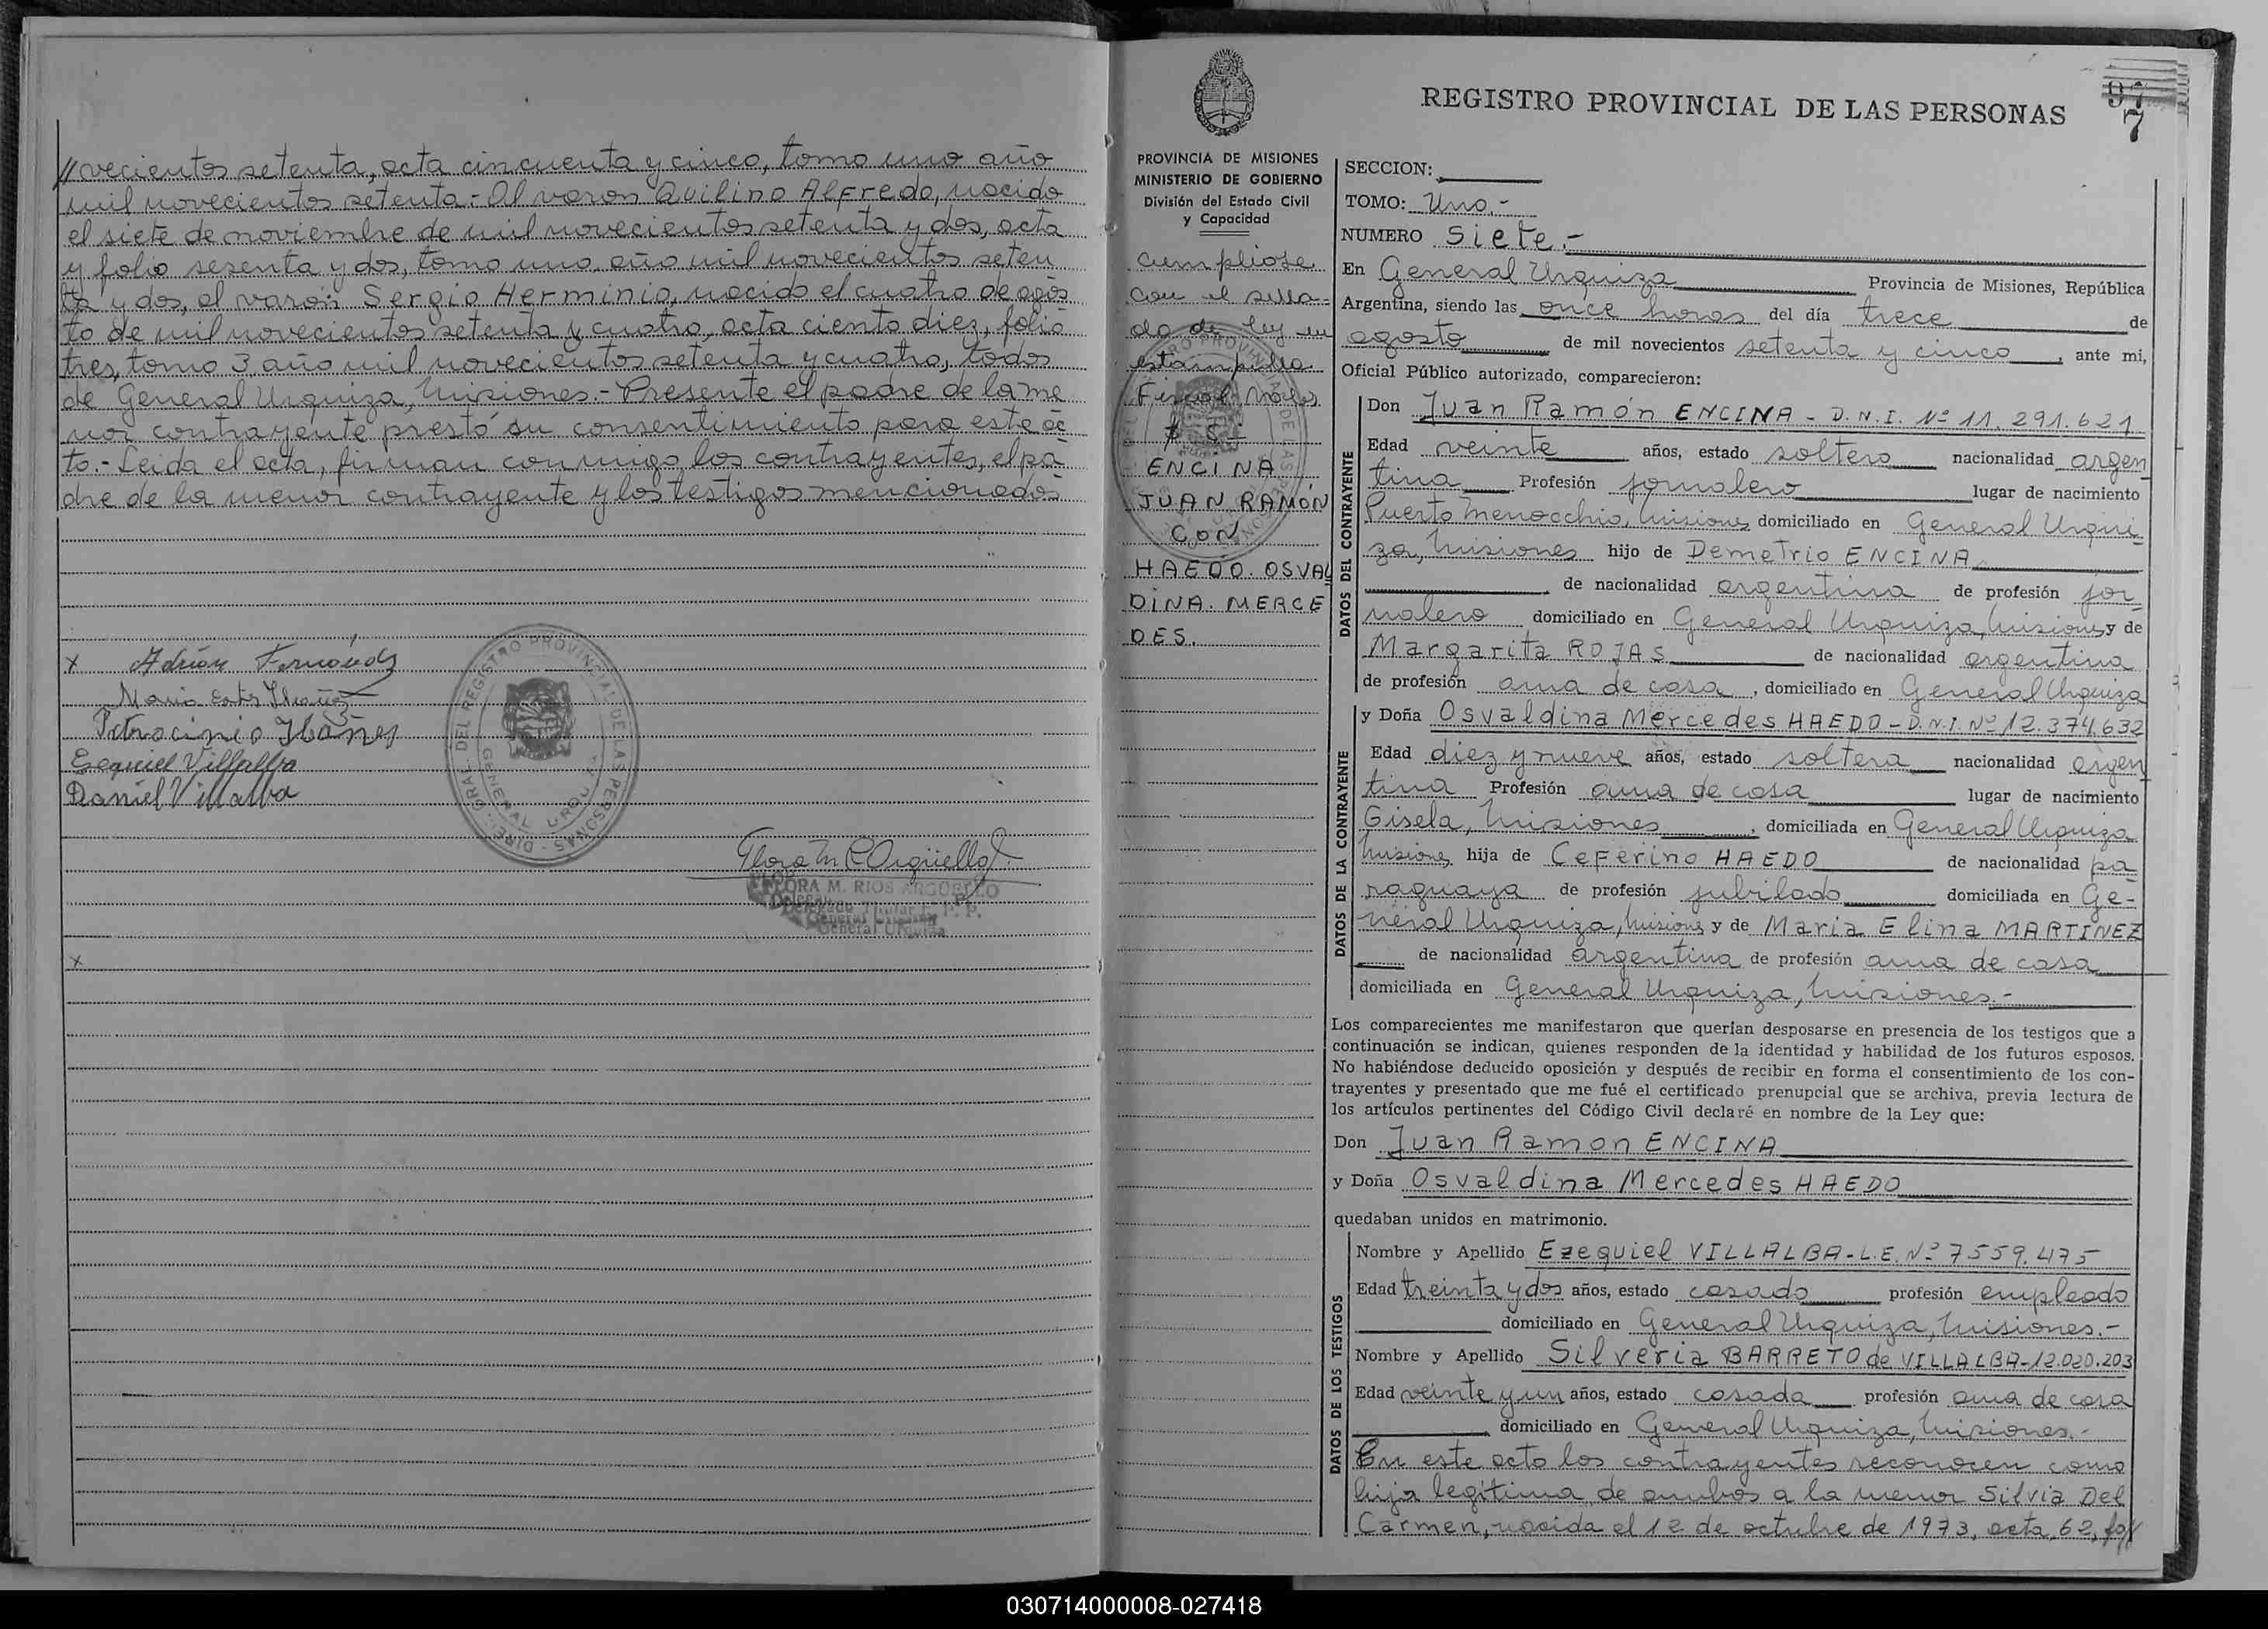 //vecientos setenta, acta cincuenta y cinco, tomo uno año
mil novecientos setenta.- Al varon Quilino Alfredo, nacido
el siete de noviembre de mil novecientos setenta y dos, acta
y folio sesenta y dos, tomo uno, año mil novecientos seten
ta y dos, el varón Sergio Herminio, nacido el cuatro de agos
to de mil novecientos setenta y cuatro, acta ciento diez, folio
tres, tomo 3 año mil novecientos setenta y cuatro, todos
de General Urquiza, Misiones.- Presente el padre de la me
nor contrayente prestó su consentimiento para este ac
to.- Leida el acta, firman conmigo los contrayentes, el pa
dre de la menor contrayente y los testigos mencionados
x Adrián Fernández
Patrocinio Ibáñez
Ezequiel Villalba
Daniel Villalba
DEL REGISTRO PROVINCIAL DE LAS PERSONAS
GENERAL URQUIZA
Flora M. R Argüello
FLORA M. RIOS ARGUELLO
Delegado Titular R. P. P.
General Urquiza
x
REGISTRO PROVINCIAL DE LAS PERSONAS
97
7
PROVINCIA DE MISIONES
MINISTERIO DE GOBIERNO
División del Estado Civil
y Capacidad
Cumpliose
con el sella-
do de ley en
estampilla
Fiscal Valor
$ 5.-
ENCINA
JUAN RAMÓN
CON
HAEDO. OSVAL
DINA. MERCE
DES.
SECCION:
TOMO: Uno.-
NUMERO Siete.-
En General Urquiza Provincia de Misiones, República
Argentina, siendo las once horas del día trece de
agosto de mil novecientos setenta y cinco, ante mi,
Oficial Público autorizado, comparecieron:
DATOS DEL CONTRAYENTE
Don Juan Ramón ENCINA - D.N.I. Nº 11.291.621
Edad veinte años, estado soltero nacionalidad argen
tina Profesión jornalero lugar de nacimiento
Puerto Menocchio, Misiones domiciliado en General Urqui
za, Misiones hijo de Demetrio ENCINA
, de nacionalidad argentina de profesión jor
nalero domiciliado en General Urquiza, Misiones y de
Margarita ROJAS de nacionalidad argentina
de profesión ama de casa, domiciliado en General Urquiza
DATOS DE LA CONTRAYENTE
y Doña Osvaldina Mercedes HAEDO - D.N.I. Nº 12.374.632
Edad diez y nueve años, estado soltera nacionalidad argen
tina Profesión ama de casa lugar de nacimiento
Gisela, Misiones, domiciliada en General Urquiza
Misiones, hija de Ceferino HAEDO de nacionalidad pa
raguaya de profesión jubilado domiciliada en Ge-
neral Urquiza, Misiones y de Maria Elina MARTINEZ
de nacionalidad argentina de profesión ama de casa
domiciliada en General Urquiza, Misiones.-
Los comparecientes me manifestaron que querían desposarse en presencia de los testigos que a
continuación se indican, quienes responden de la identidad y habilidad de los futuros esposos.
No habiéndose deducido oposición y después de recibir en forma el consentimiento de los con-
trayentes y presentado que me fué el certificado prenupcial que se archiva, previa lectura de
los artículos pertinentes del Código Civil declaré en nombre de la Ley que:
Don Juan Ramon ENCINA
y Doña Osvaldina Mercedes HAEDO
quedaban unidos en matrimonio.
DATOS DE LOS TESTIGOS
Nombre y Apellido Ezequiel VILLALBA - L.E. Nº 7559.475
Edad treinta y dos años, estado casado profesión empleado
domiciliado en General Urquiza, Misiones.-
Nombre y Apellido Silveria BARRETO de VILLALBA-12.020.203
Edad veinte y un años, estado casada profesión ama de casa
, domiciliado en General Urquiza, Misiones.-
En este acto los contrayentes reconocen como
hija legítima de ambos a la menor Silvia Del
Carmen, nacida el 12 de octubre de 1973, acta 62, fo//
030714000008-027418